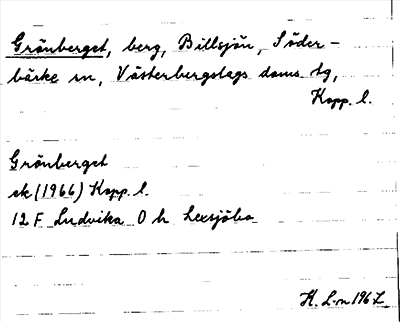 Grönberget, berg, Billsjön, Söder-
bärke sn, Västerbergslags doms. tg,
Kopp. l.
Grönberget
ek (1966) Kopp. l.
12 F Ludvika O h Lexsjöbo
H. L-n 1967